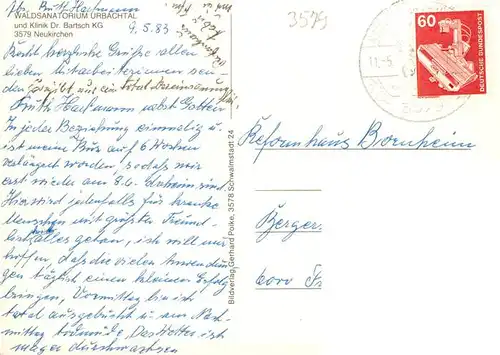 Ihr Britt Hackmann
WALDSANATORIUM URBACHTAL
und Klinik Dr. Bartsch KG
3579 Neukirchen
9.5.83
3579
60
DEUTSCHE BUNDESPOST
11.-5.
Recht herzliche Grüße allen
lieben Mitarbeiterinnen
Hackmann nebst Gatten
In jeder Beziehung einmalig u.
ist meine Kur auf 6 Wochen
verlängert worden, sodass wir
erst wieder am 8.6. daheim sind.
Hier wird jedenfalls für kranke
Menschen mit größter Freund-
getan, ich will nur
hoffen, daß die vielen Anwendun
gen täglich einen kleinen Erfolg
bringen, Vormittag bin ich
total ausgebucht u. am Nach-
mittag todmüde. Das Wetter ist
mager durchwachsen
Bildverlag Gerhard Polke, 3578 Schwalmstadt 24
Reformhaus Bornheim
Berger
6000